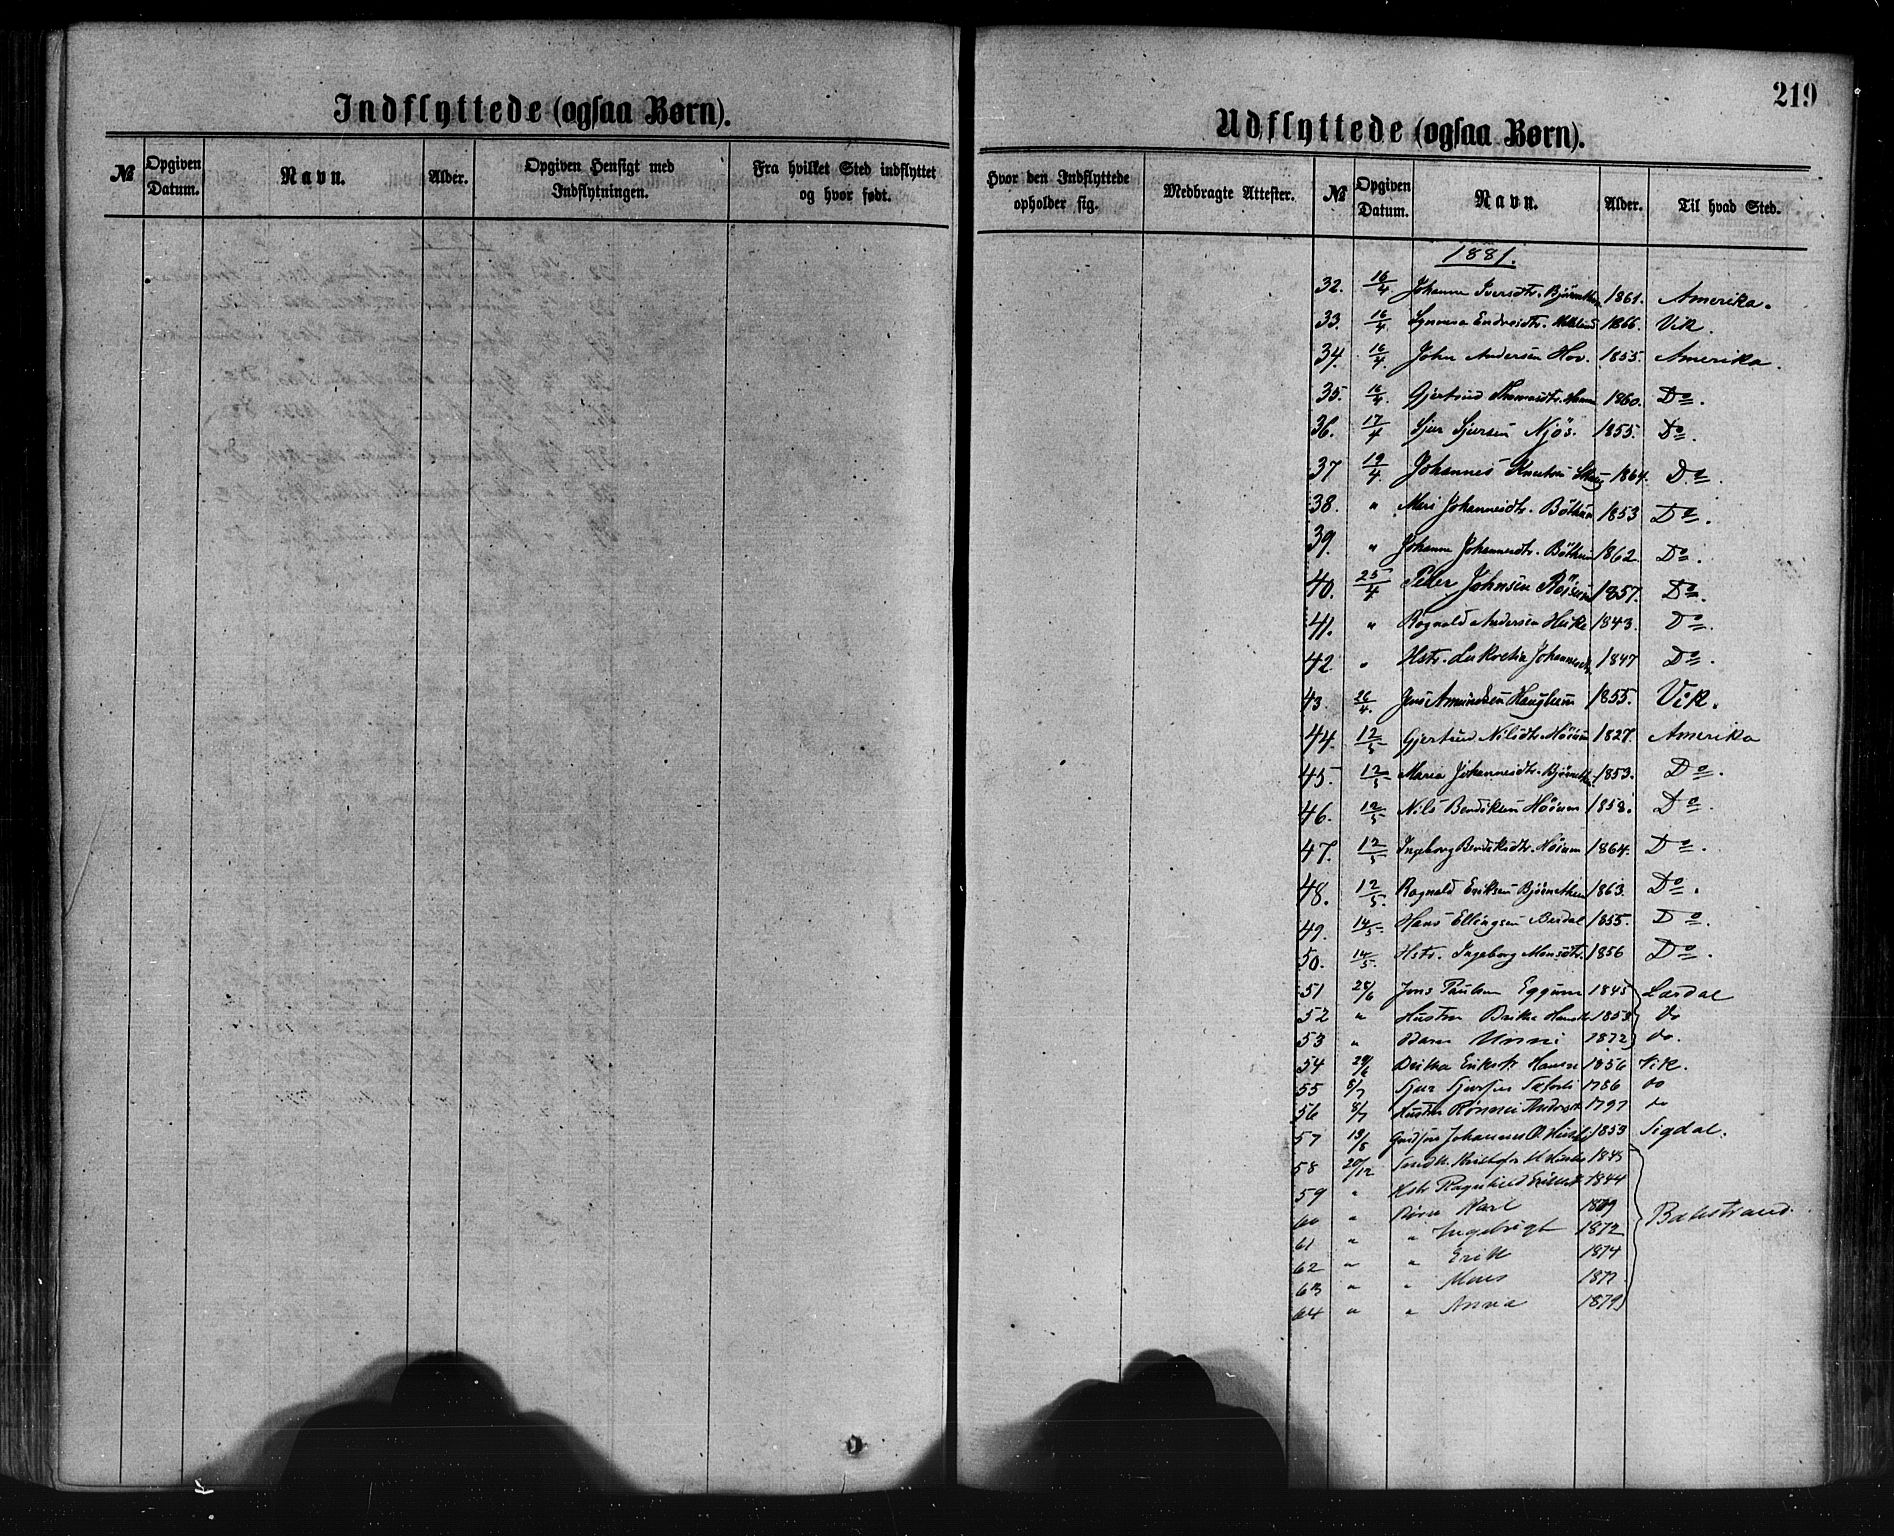 Indflyttede (ogsaa Børn).
№ Opgiven Datum. Navn. Alder. Opgiven Hensigt med Indflytningen. Fra hvilket Sted indflyttet og hvor født.
219
Udflyttede (ogsaa Børn).
Hvor den Indflyttede opholder sig. Medbragte Attester. № Opgiven Datum. Navn. Alder. Til hvad Sted.
1881.
32. 16/4. Johanne Iversdtr. 1861. Amerika.
33. 16/4 Endreidtr. 1866. Vik.
34. 16/4. John Andersen Hov. 1855. Amerika.
35. 16/4 Gjertrud 1860. Do.
36. 17/4 Sjur Sjursen Njøs. 1855. Do.
37 19/4. Johannes Knutsen 1864. Do.
38. " Mari Johannesdtr. Böthun 1853 Do.
39. " Johanne Johannesdtr. Böthun 1862 Do.
40. 25/4 Peder Johnsen 1857. Do.
41. " Rognald Andersen Heike 1843. Do.
42 " Hstr. Lukretia Johannesdtr. 1847 Do.
43. 26/4. Jens Amundsen Haugheim 1855. Vik.
44. 12/5 Gjertrud Nilsdtr. Höium 1827. Amerika
45. 12/5 Maria Johannesdtr. 1853. Do.
46. 12/5 Nils Bendiksen Höium 1858. Do.
47. 12/5 Ingeborg Bendiksdtr. Höium 1864. Do.
48. 12/5. Rognald Eriksen 1863. Do.
49. 14/5 Hans Ellingsen 1855. Do.
50. 14/5. Hstr. Ingeborg Monsdtr. 1856 Do.
51 28/6 Jens Paulsen Eggum 1845 Lærdal
52 " Hustru Brita 1853 do
53 " Barn Unni 1872 do.
54 29/6 Brita Eriksdtr 1856 Vik.
55 8/7 Sjur Sjursen 1786 do
56 8/7 Hustru Rønnei 1797 do
57 13/8 Johannes 1853 Sigdal.
58 20/12 1845
59 " Hstr Ragnhild 1844
60 " Børn Karl 1869 Balestrand.
61 " " Ingebrigt 1872
62 " " Erik 1874
63 " " Mons 1877
64 " " Anna 1879